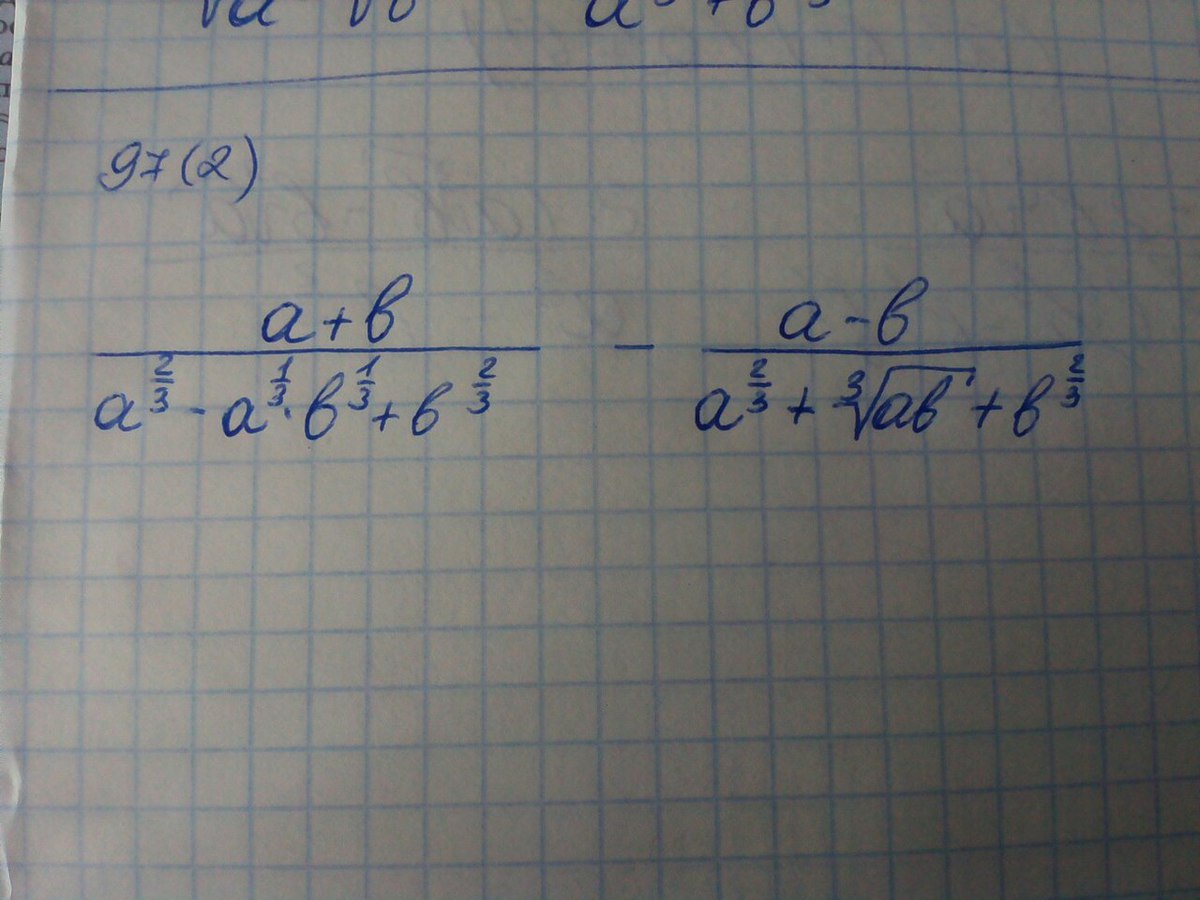 97(2)
\frac{a+b}{a^{\frac{2}{3}} - a^{\frac{1}{3}} \cdot b^{\frac{1}{3}} + b^{\frac{2}{3}}} - \frac{a-b}{a^{\frac{2}{3}} + \sqrt[3]{ab} + b^{\frac{2}{3}}}